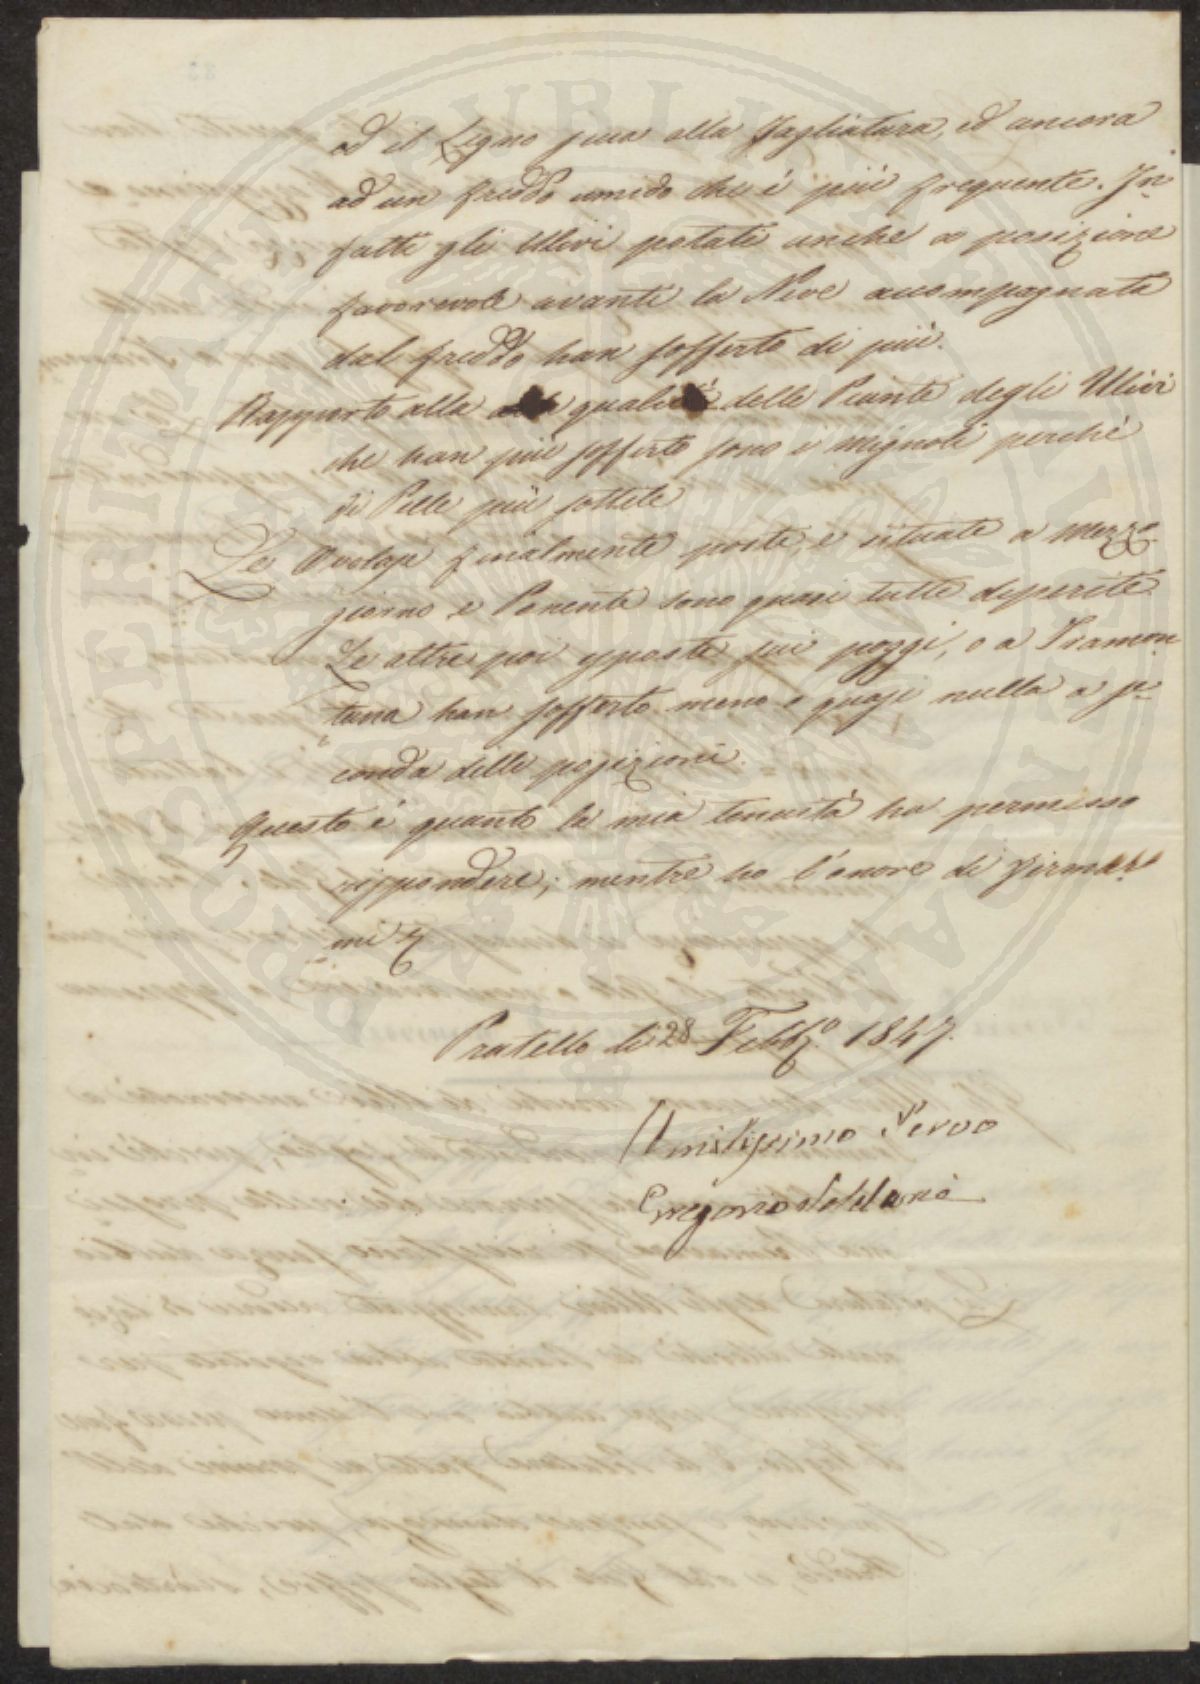 ed il Legno pua alla Tagliatura, ed ancora
ad un freddo umido che è più frequente. In=
fatti gli Ulivi potati anche a posizione
favorevole avanti la Neve accompagnata
dal freddo han sofferto di più.
Rapporto alla qualità delle Piante degli Ulivi
che han più sofferto sono i Mignoli perché
di Pelle più sottile
Le finalmente poste, e situate a Mezzo
giorno e Ponente sono quasi tutte deperite
Le altre poi esposte sui poggi, o a Tramon=
tana han sofferto meno e quasi nulla a se=
conda delle posizioni.
Questo è quanto la mia tenuità ha permesso
rispondere; mentre ho l'onore di firmar=
mi
Pratello li 28 Febb.o 1847.
Umilissimo Servo
Gregorio Soldani
PROSPERITATI PUBLICAE AUGENDAE